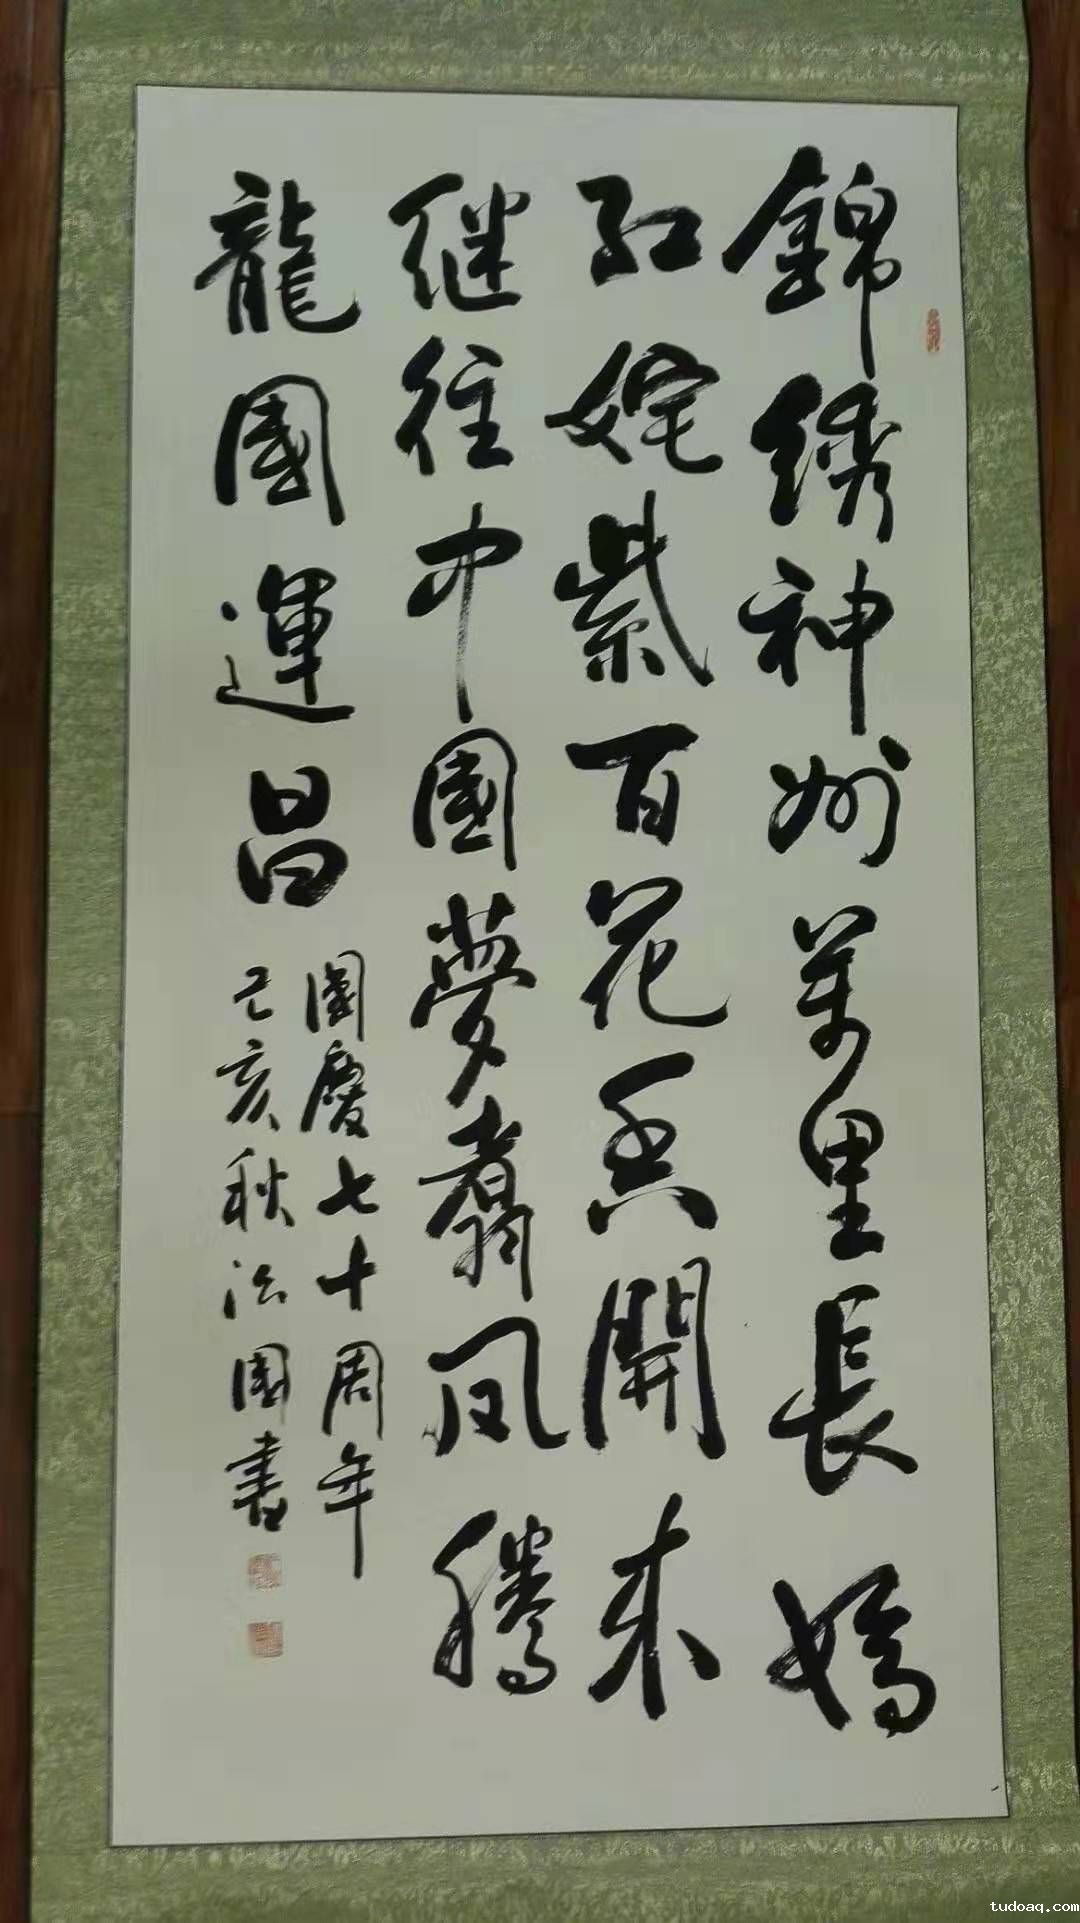 錦绣神州萬里長嬌
红姹紫百花香開来
继往中國夢翥凤騰
龍國運昌
國慶七十周年
己亥秋法國書
tudoaq.com